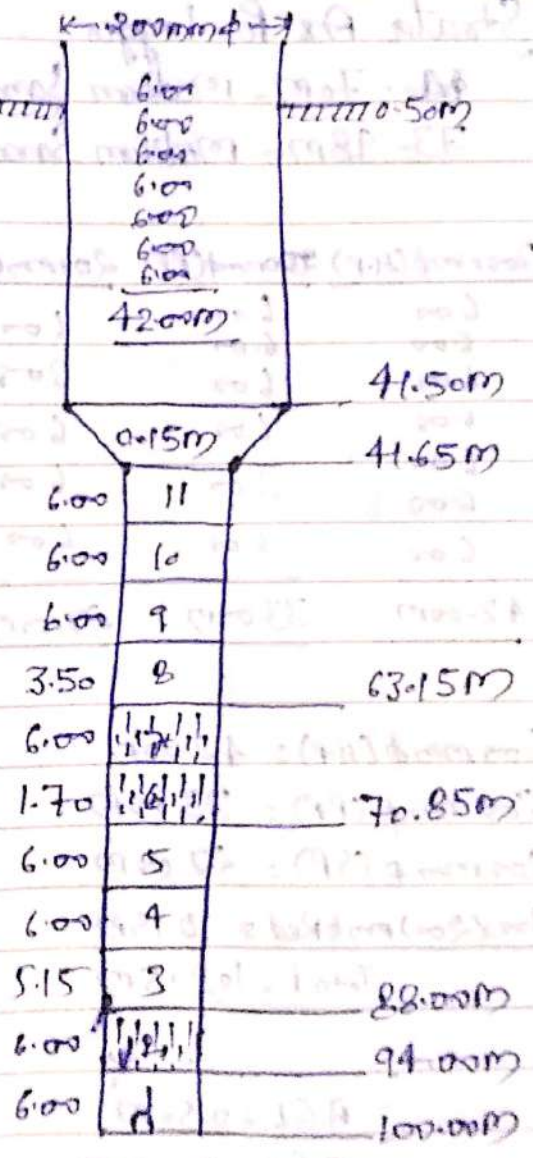 200mmϕ
6.00
0.50m
6.00
6.00
6.00
6.00
6.00
6.00
42.00m
41.50m
0.15m
41.65m
6.00 11
6.00 10
6.00 9
3.50 8
63.15m
6.00
1.70 6
70.85m
6.00 5
6.00 4
5.15 3
88.00m
6.00 2
94.00m
6.00
100.00m